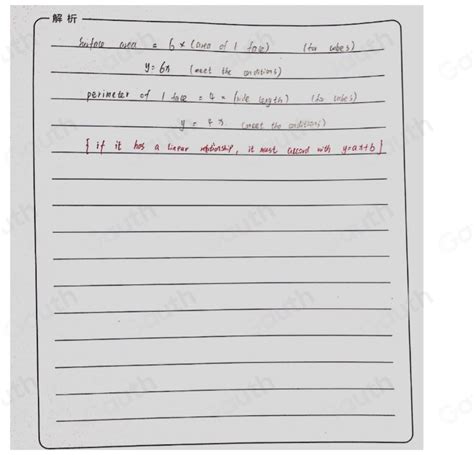 解析
Surface area = 6 × (area of 1 face) (for cubes)
y = 6x (meet the conditions)
perimeter of 1 face = 4 × (side length) (for cubes)
y = 4x. (meet the conditions)
{ if it has a linear relationship, it must accord with y=ax+b }